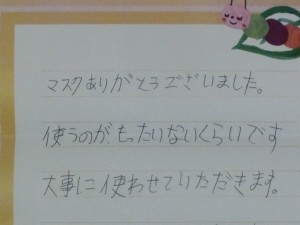 マスクありがとうございました。
使うのが、もったいないくらいです
大事に使わせていただきます。